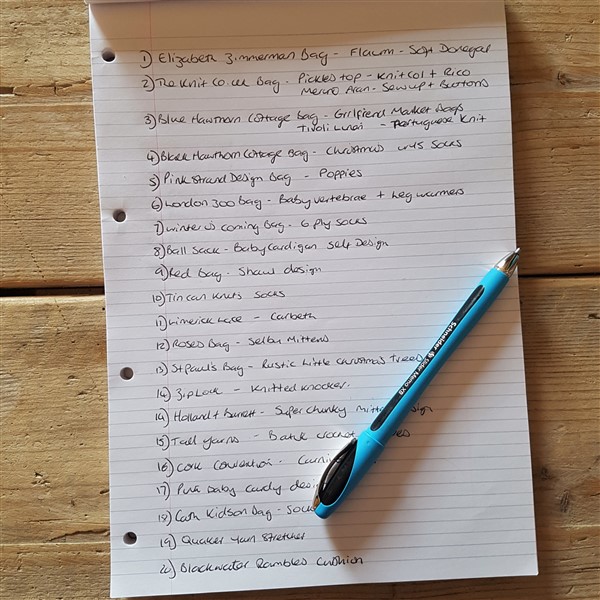 1) Elizabeth Zimmerman Bag - Flaum - Soft Donegal
2) The Knit Co. Bag - Pickles top - Knitcol + Rico
Merino Aran - Sew up + Buttons
3) Blue Hawthorn Cottage Bag - Girlfriend Market Bags
Tivoli - Portuguese Knit
4) Black Hawthorn Cottage Bag - Christmas socks
5) Pink Strand Design Bag - Poppies
6) London 300 Bag - Baby vertebrae + Leg warmers
7) Winter is coming Bag - 6 ply socks
8) Ball Sack - Baby Cardigan Self Design
9) Red Bag - Shawl design
10) Tin can Knits Socks
11) Limerick Lace - Carbeth
12) Roses Bag - Selbu Mittens
13) St Paul's Bag - Rustic Little Christmas Trees
14) Ziplock - Knitted Knocker.
14) Holland + Barrett - Super chunky
15) Tall Yarns - Batik crochet
16) Cork Convention -
17) Pink Baby Cardy
18) Cath Kidson Bag -
19) Quaker Yarn Stretcher
20) Blackwater Rambles Cushion
Schneider Slider Memo XB